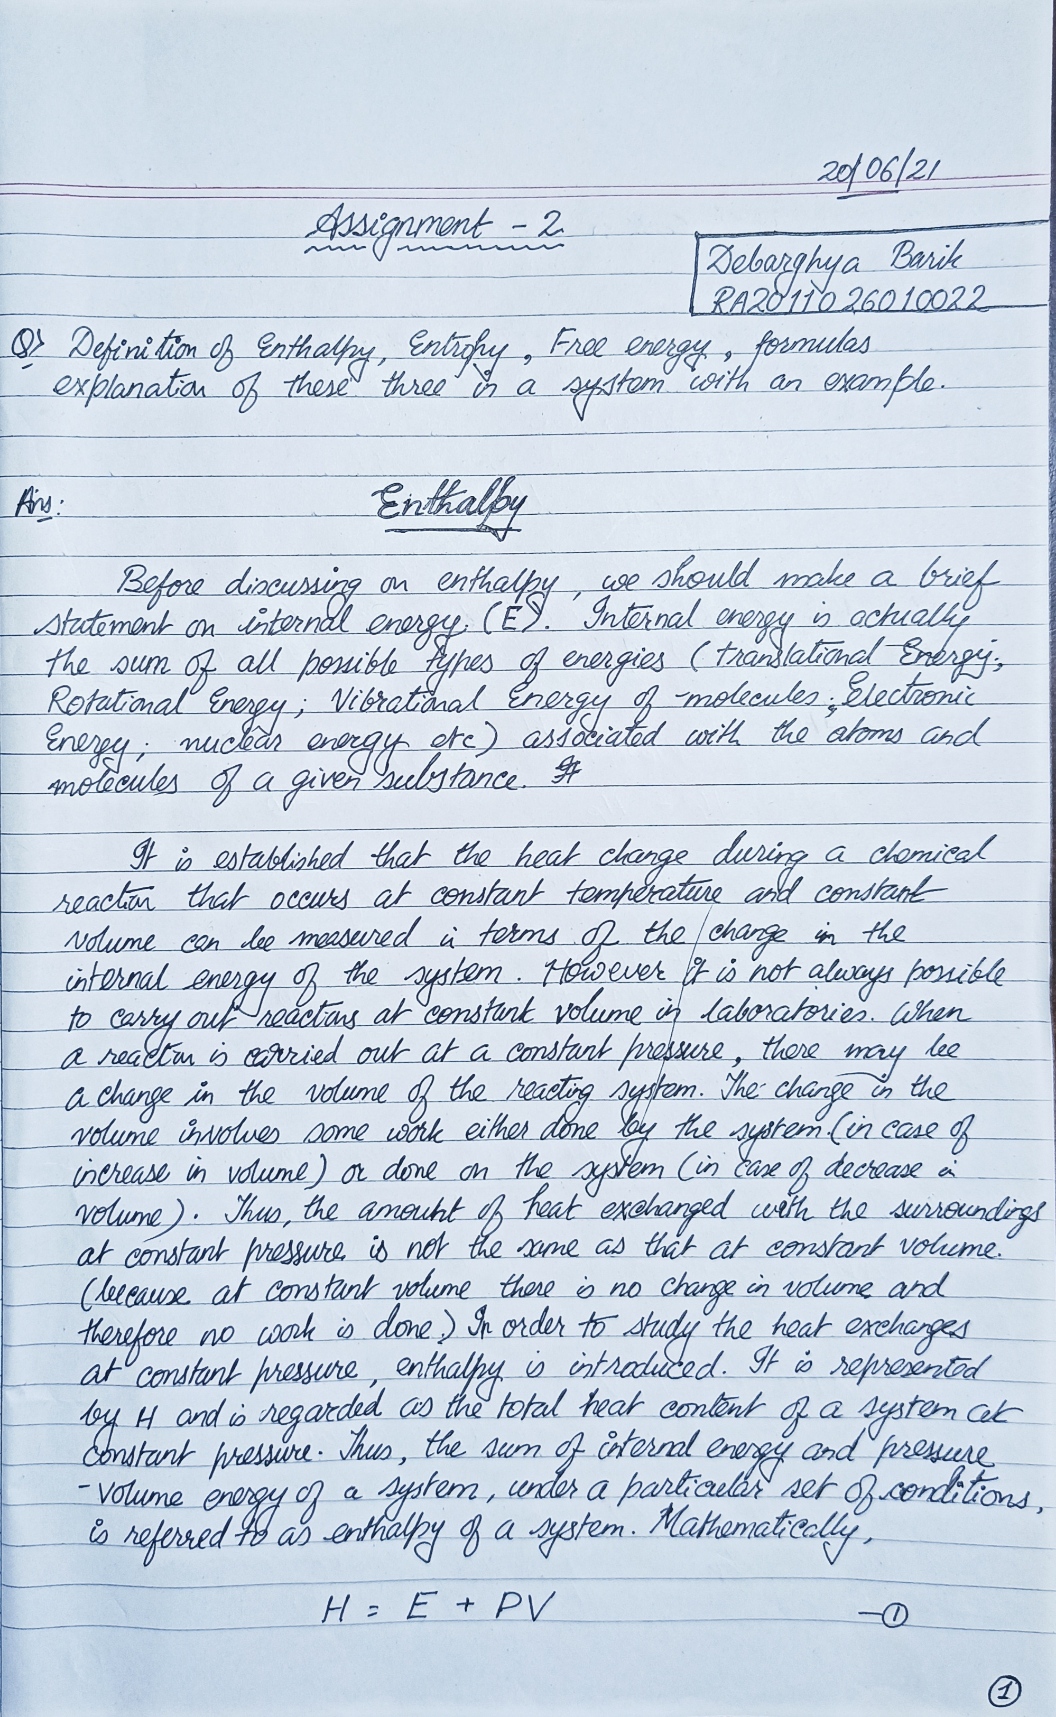 20/06/21
Assignment - 2
Debarghya Barik
RA2011026010022
Q> Definition of Enthalpy, Entropy, Free energy, formulas
explanation of these three in a system with an example.
Ans:
Enthalpy
Before discussing on enthalpy, we should make a brief
statement on internal energy (E). Internal energy is actually
the sum of all possible types of energies (translational Energy;
Rotational Energy; Vibrational Energy of molecules; Electronic
Energy; nuclear energy etc) associated with the atoms and
molecules of a given substance.
It is established that the heat change during a chemical
reaction that occurs at constant temperature and constant
volume can be measured in terms of the change in the
internal energy of the system. However it is not always possible
to carry out reactions at constant volume in laboratories. When
a reaction is carried out at a constant pressure, there may be
a change in the volume of the reacting system. The change in the
volume involves some work either done by the system (in case of
increase in volume) or done on the system (in case of decrease in
volume). Thus, the amount of heat exchanged with the surroundings
at constant pressure is not the same as that at constant volume.
(because at constant volume there is no change in volume and
therefore no work is done) In order to study the heat exchanges
at constant pressure, enthalpy is introduced. It is represented
by H and is regarded as the total heat content of a system at
constant pressure. Thus, the sum of internal energy and pressure
-volume energy of a system, under a particular set of conditions,
is referred to as enthalpy of a system. Mathematically,
H = E + PV —①
①